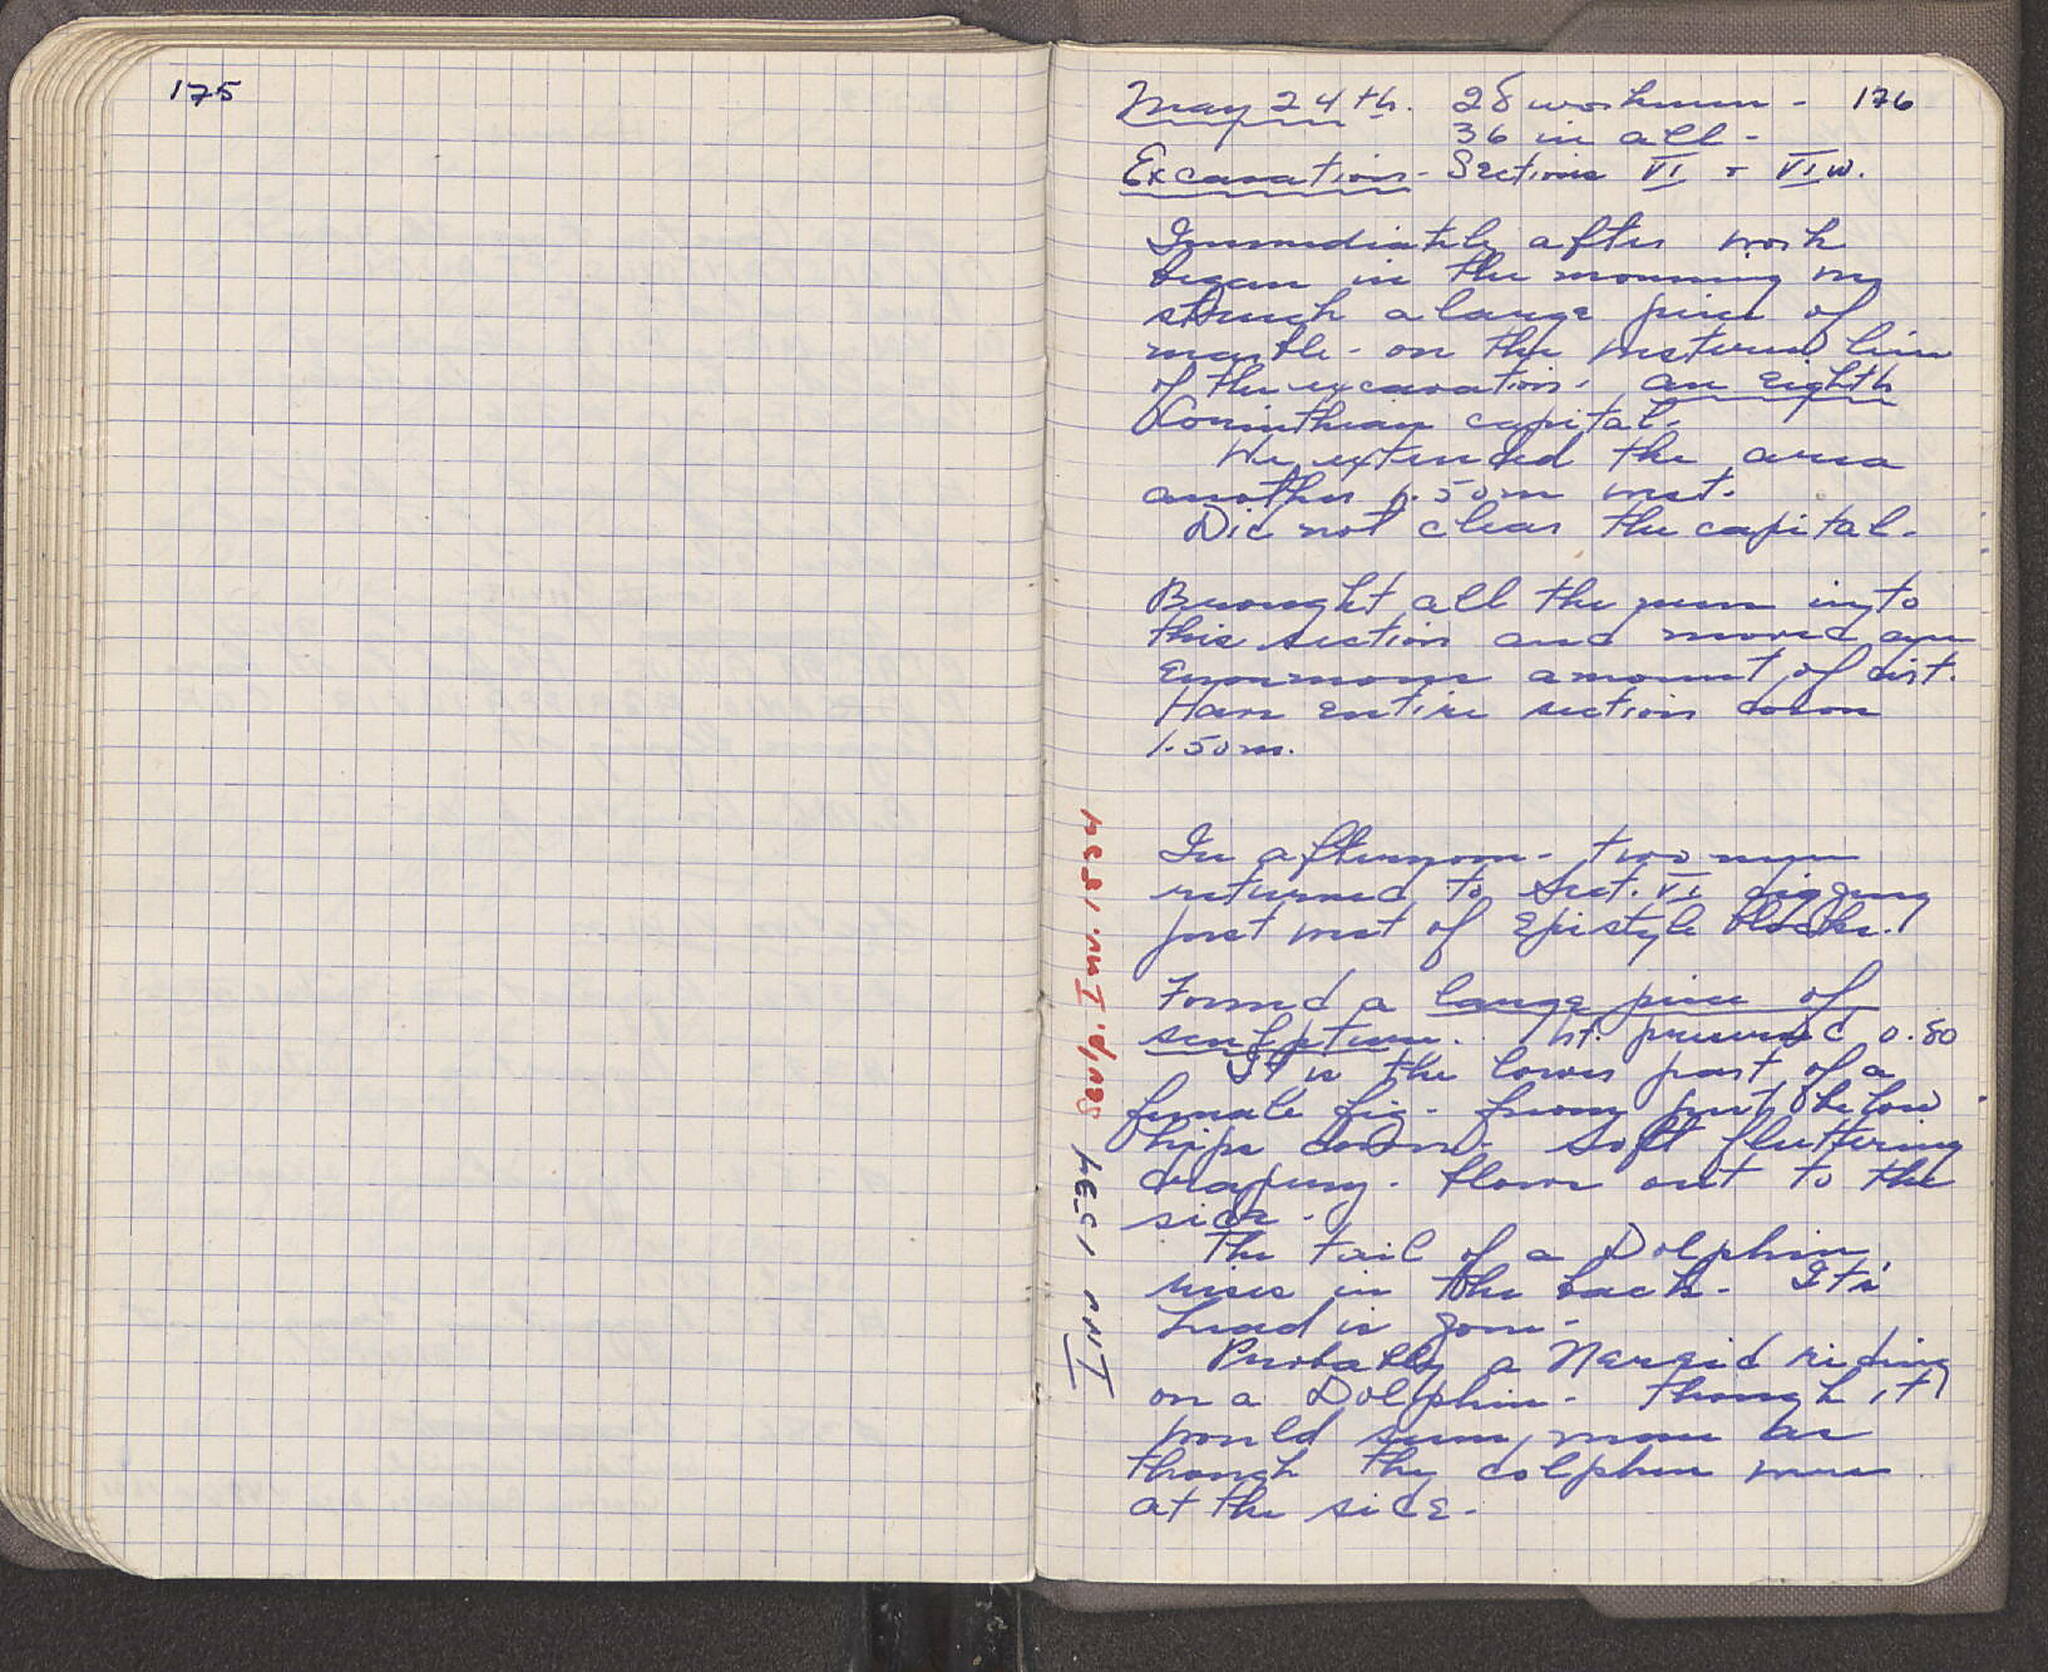 175
May 24th. 28 workmen - 176
36 in all -
Excavation - Sections VI + VI W.
Immediately after work
began in the morning we
struck a large piece of
marble - on the western line
of the excavation - an eighth
Corinthian capital.
We extended the area
another 1.50m west.
Did not clear the capital.
Brought all the men into
this section and moved an
enormous amount of dirt.
Have entire section down
1.50m.
In afternoon - two men
returned to Sect. VI digging
just west of Epistyle blocks.
Found a large piece of
sculpture. ht. preserved 0.80
It is the lower part of a
female fig. from just below
hips down - soft fluttering
drapery - flows out to the
side -
The tail of a Dolphin
rises in the back - It's
head is gone -
Probably a Nereid riding
on a Dolphin - though it
would seem more as
though the dolphin were
at the side -
Inv 1534
Sculp. Inv. 1854